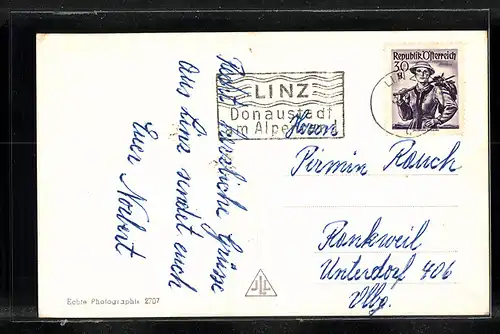 Recht herzliche Grüsse
aus Linz sendet euch
Euer Norbert
LINZ
Donaustadt
am Alpen
30
Republik Österreich
Herrn
Pirmin Rauch
Rankweil
Unterdorf 406
Vlbg.
Echte Photographie 2707